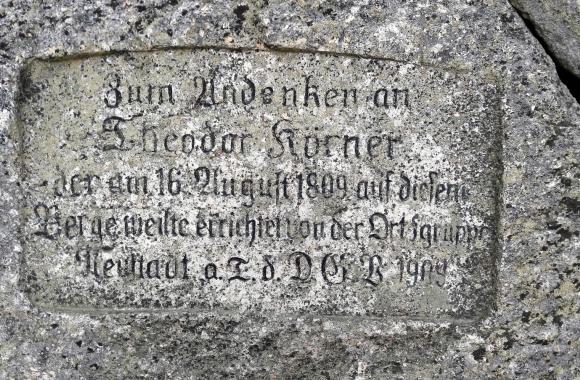 Zum Andenken an
Theodor Körner
der am 16. August 1809 auf diesem
Berge weilte errichtet von der Ortsgruppe
Neustadt a. T. d. D G. V 1909